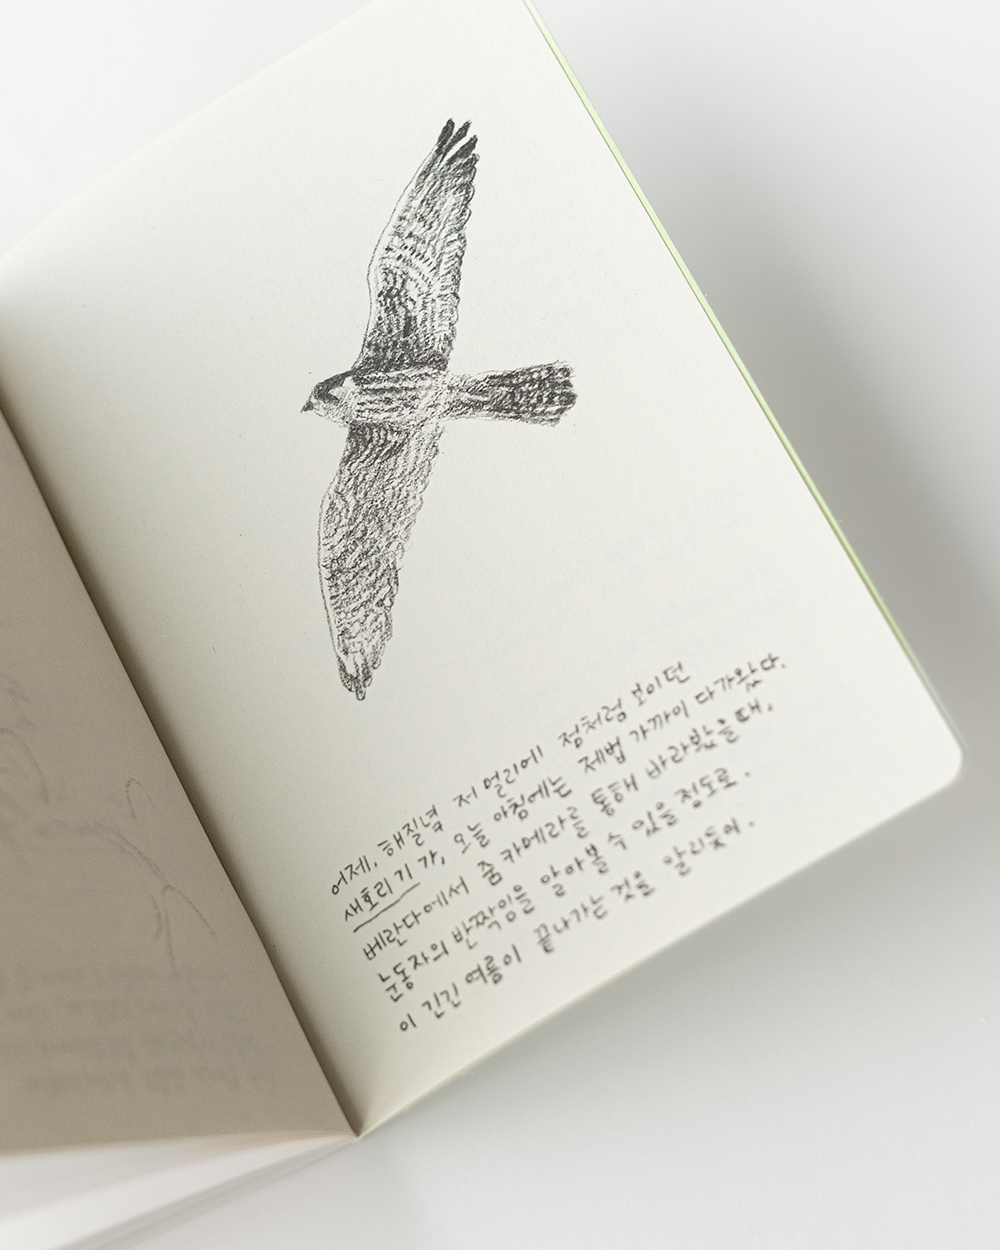 어제, 해질녘 저 멀리에 점처럼 보이던
새호리기가, 오늘 아침에는 제법 가까이 다가왔다.
베란다에서 줌 카메라를 통해 바라봤을 때,
눈동자의 반짝임을 알아볼 수 있을 정도로.
이 긴긴 여름이 끝나가는 것을 알리듯이.